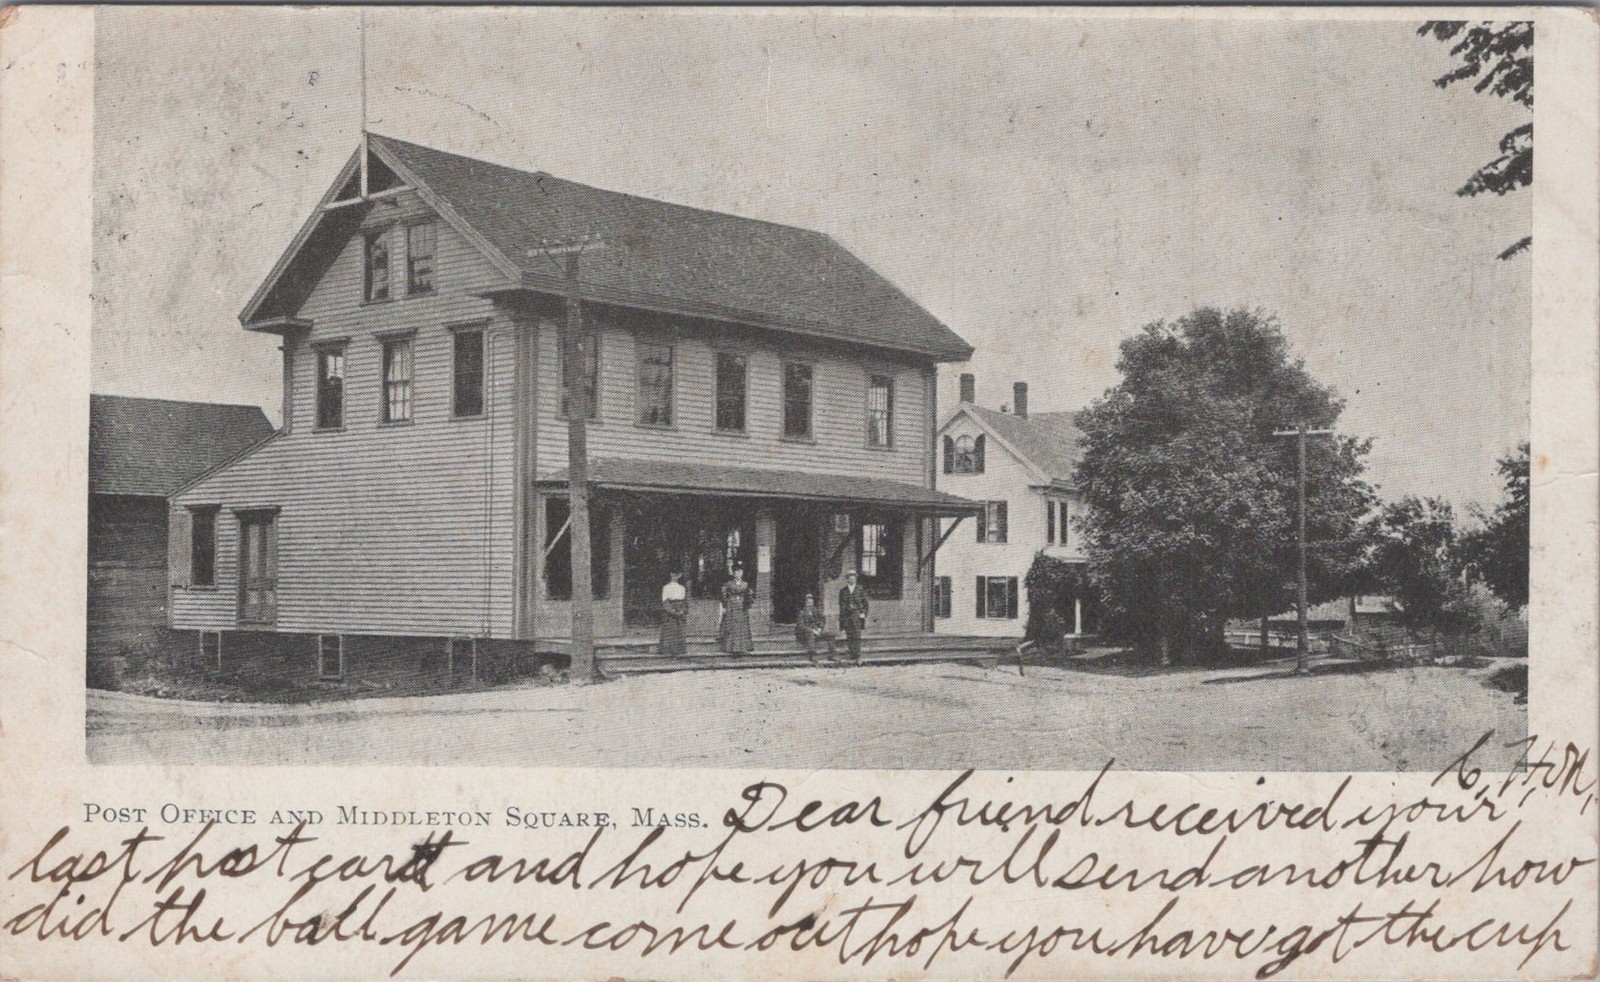 C. H. M.
POST OFFICE AND MIDDLETON SQUARE, MASS. Dear friend received your
last post card and hope you will send another how
did the ball game come out hope you have got the cup